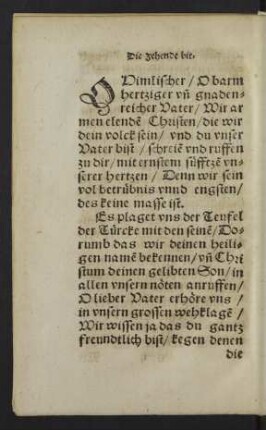 Die zehende bit.
O Himlischer / O barm
hertziger vñ gnaden-
reicher Vater / Wir ar
men elendē Christen / die wir
dein volck sein / vnd du vnser
Vater bist / schreiē vnd ruffen
zu dir / mit ernstem süfftzē vn-
serer hertzen / Denn wir sein
vol betrübnis vnnd engsten /
des keine masse ist.
Es plaget vns der Teufel
der Türcke mit den seinē / Do-
rumb das wir deinen heili-
gen namē bekennen / vñ Chri
stum deinen gelibten Son / in
allen vnsern nöten anruffen /
O lieber Vater erhöre vns /
in vnsern grossen wehklagē /
Wir wissen ja das du gantz
freundtlich bist / kegen denen
die